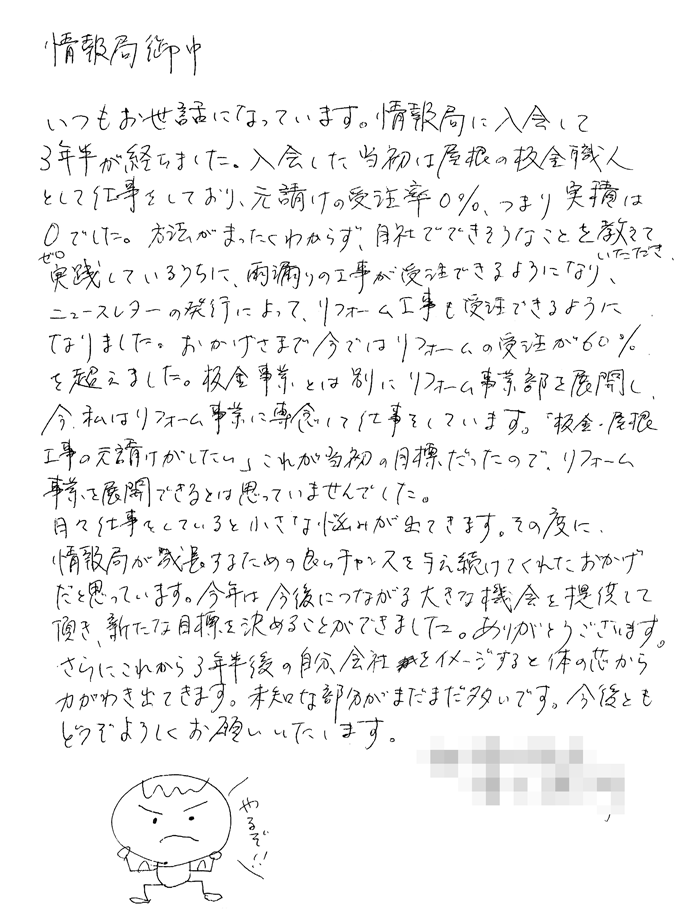 情報局御中
いつもお世話になっています。情報局に入会して
3年半が経ちました。入会した当初は屋根の板金職人
として仕事をしており、元請けの受注率0%、つまり実績は
0でした。方法がまったくわからず、自社でできそうなことを教えて
ゼロ
いただき、
実践しているうちに、雨漏りの工事が受注できるようになり、
ニュースレターの発行によって、リフォーム工事も受注できるように
なりました。おかげさまで今ではリフォームの受注が60%
を超えました。板金事業とは別にリフォーム事業部を展開し、
今、私はリフォーム事業に専念して仕事をしています。「板金・屋根
工事の元請けがしたい」これが当初の目標だったので、リフォーム
事業を展開できるとは思っていませんでした。
日々仕事をしていると小さな悩みが出てきます。その度に、
情報局が成長するための良いチャンスを与え続けてくれたおかげ
だと思っています。今年は今後につながる大きな機会を提供して
頂き、新たな目標を決めることができました。ありがとうございます。
さらにこれから3年半後の自分、会社をイメージすると体の芯から
力がわき出てきます。未知な部分がまだまだ多いです。今後とも
どうぞよろしくお願いいたします。
やるぞ!!